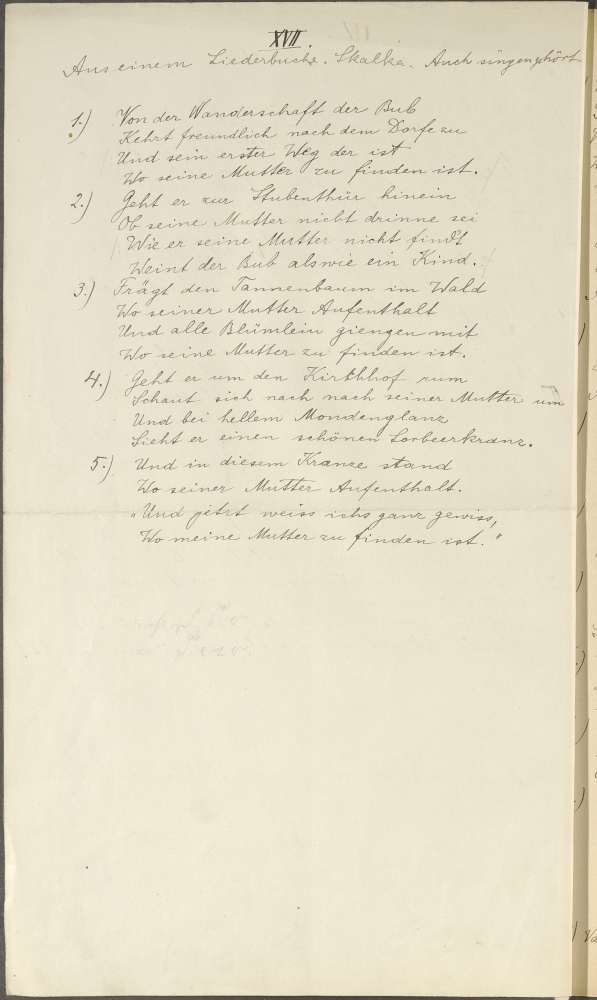 XVII.
Aus einem Liederbuche. Skalka. Auch singen gehört
1.) Von der Wanderschaft der Bub
Kehrt freundlich nach dem Dorfe zu
Und sein erster Weg der ist
Wo seine Mutter zu finden ist.
2.) Geht er zur Stubenthür hinein
Ob seine Mutter nicht drinne sei
Wie er seine Mutter nicht find't
Weint der Bub alswie ein Kind.
3.) Frägt den Tannenbaum im Wald
Wo seiner Mutter Aufenthalt
Und alle Blümlein giengen mit
Wo seine Mutter zu finden ist.
4.) Geht er um den Kirchhof rum
Schaut sich nach nach seiner Mutter um
Und bei hellem Mondenglanz
Sieht er einen schönen Lorbeerkranz.
5.) Und in diesem Kranze stand
Wo seiner Mutter Aufenthalt.
"Und jetzt weiss ichs ganz gewiss,
Wo meine Mutter zu finden ist."